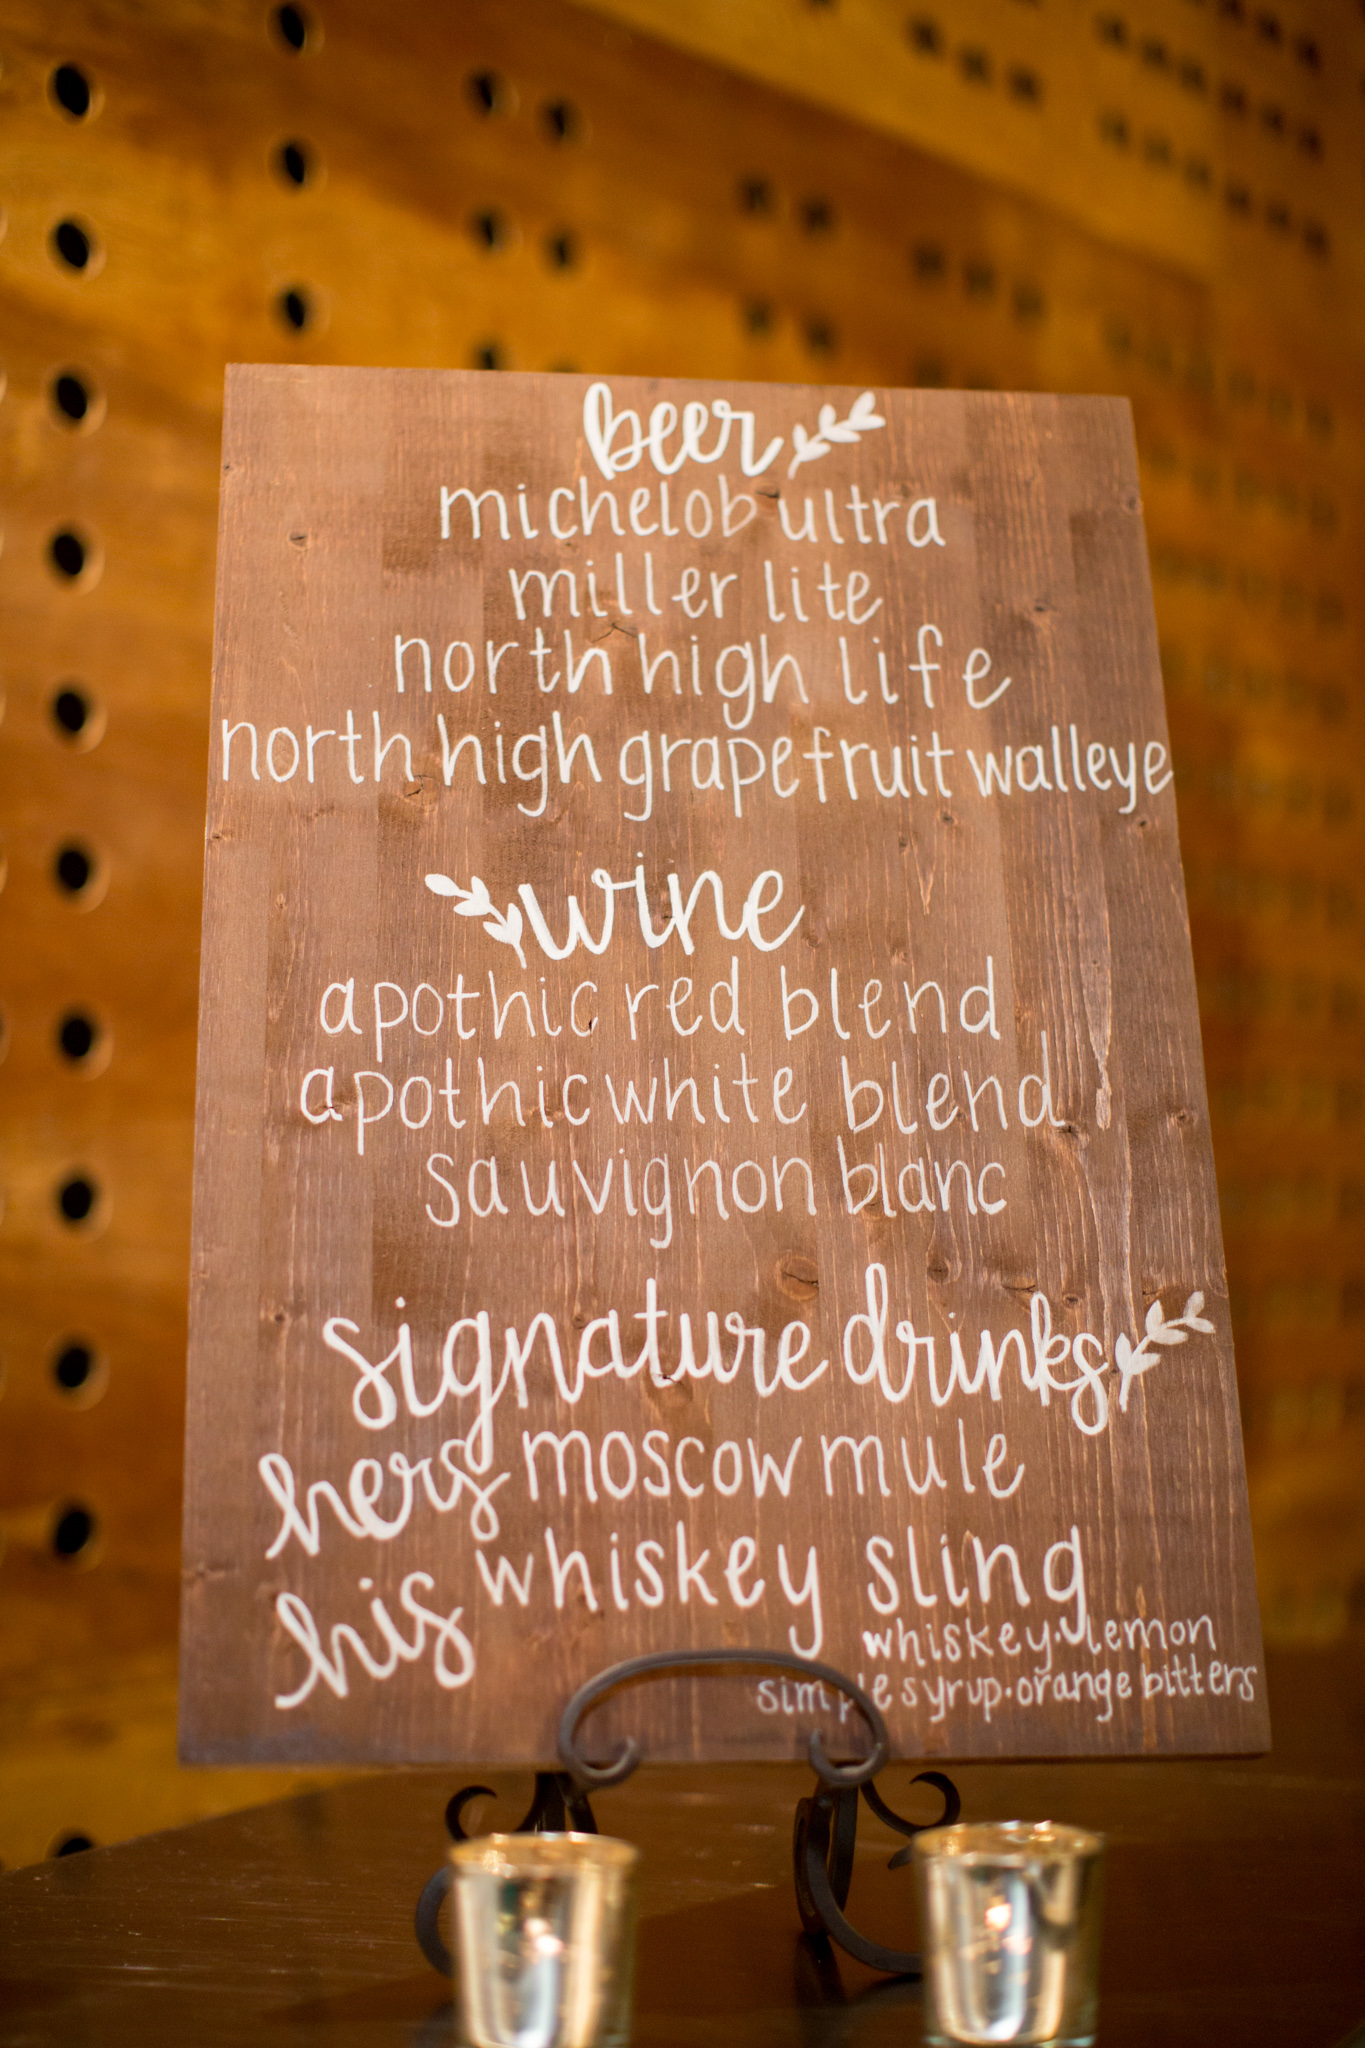 beer
michelob ultra
miller lite
north high life
north high grapefruit walleye
wine
apothic red blend
apothic white blend
sauvignon blanc
signature drinks
hers moscow mule
his whiskey sling
whiskey·lemon
simple syrup·orange bitters